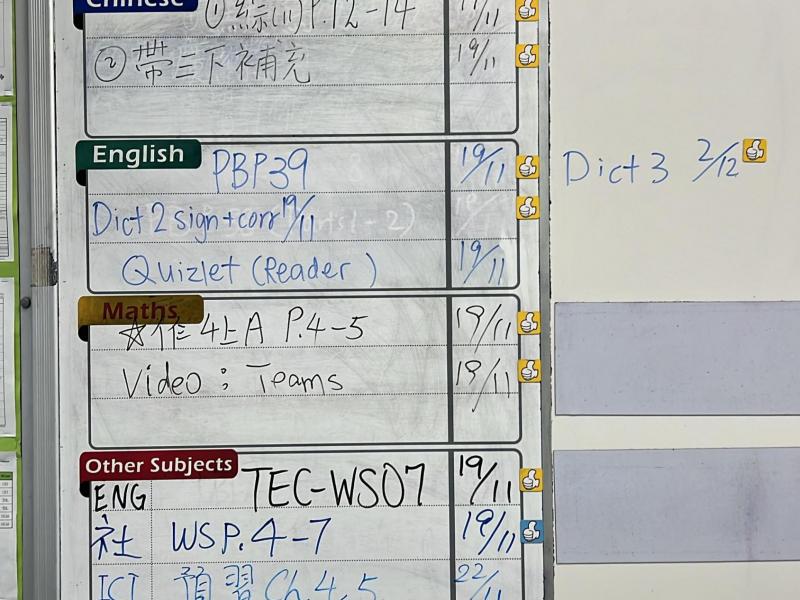 Chinese
① 綜(11) P.12-14 11/11
② 帶三下補充 19/11
English
PBP39 19/11
Dict 3 2/12
Dict 2 sign+corr 19/11
Quizlet (Reader) 19/11
Maths
☆作4上A P.4-5 19/11
Video : Teams 19/11
Other Subjects
ENG TEC-WS07 19/11
社 WS P.4-7 19/11
ICT 預習 Ch.4,5 22/11